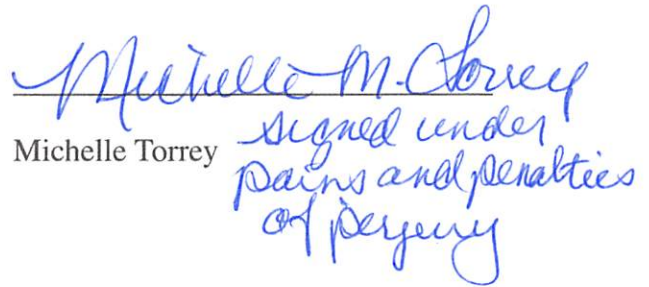 Michelle M. Torrey
Michelle Torrey
signed under
pains and penalties
of perjury